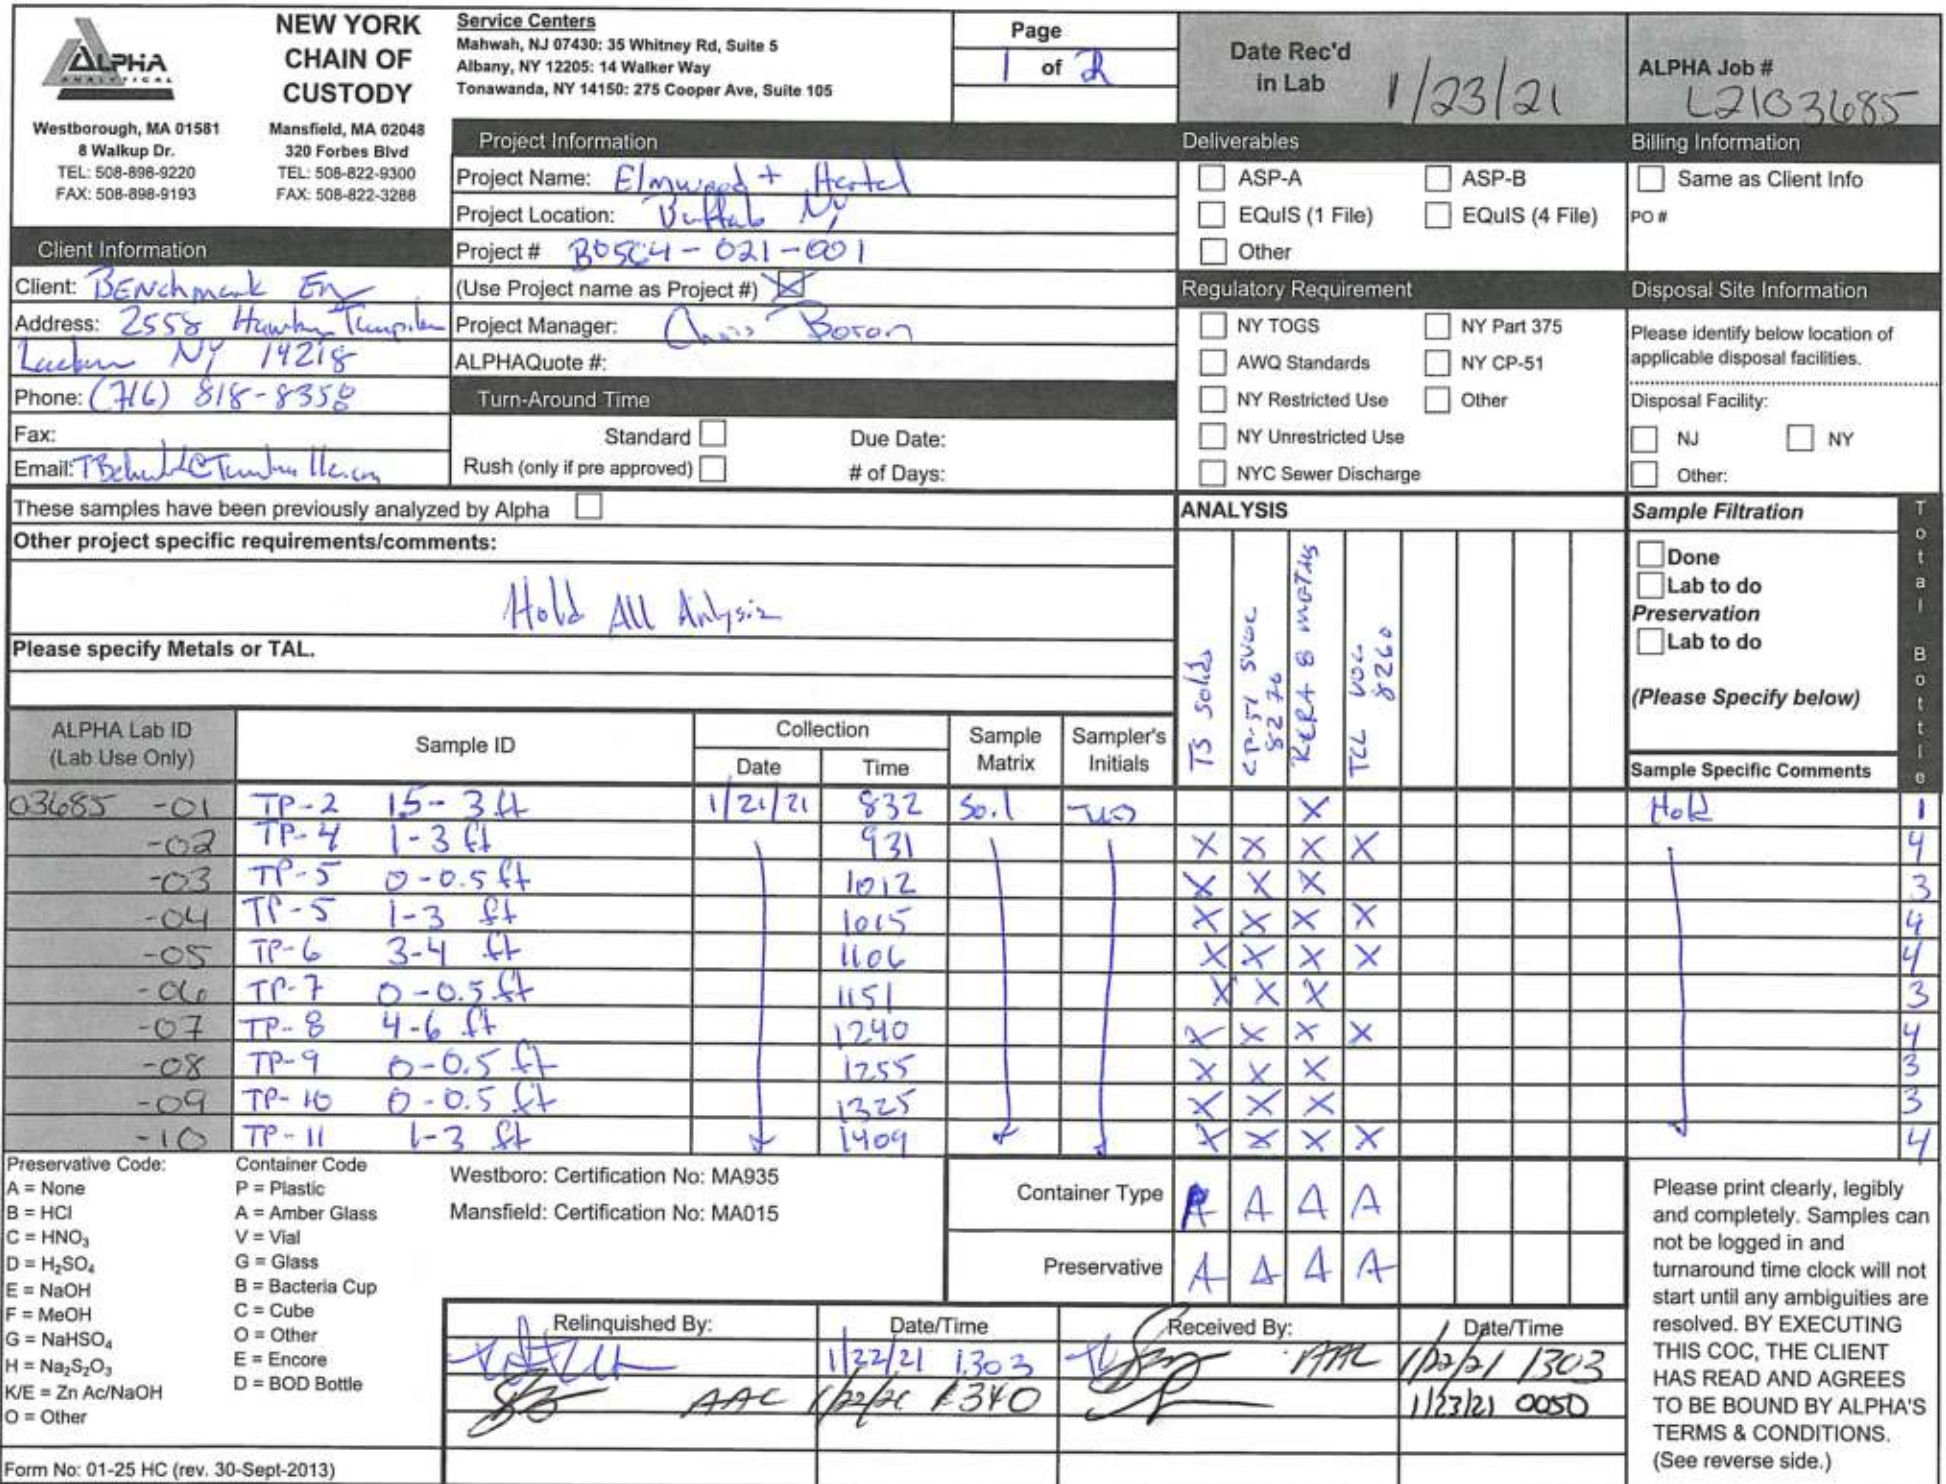 ALPHA
ANALYTICAL
Westborough, MA 01581
8 Walkup Dr.
TEL: 508-898-9220
FAX: 508-898-9193
NEW YORK
CHAIN OF
CUSTODY
Mansfield, MA 02048
320 Forbes Blvd
TEL: 508-822-9300
FAX: 508-822-3288
Service Centers
Mahwah, NJ 07430: 35 Whitney Rd, Suite 5
Albany, NY 12205: 14 Walker Way
Tonawanda, NY 14150: 275 Cooper Ave, Suite 105
Page
1 of 2
Date Rec'd
in Lab 1/23/21
ALPHA Job #
L2103685
Client Information
Client: BENchmark En
Address: 2558 Hamburg Turnpike
NY 14218
Phone: (716) 818-8358
Fax:
Email:
Project Information
Project Name: Elmwood + Hertel
Project Location: Buffalo NY
Project # B0504-021-001
(Use Project name as Project #) X
Project Manager: Chris Boron
ALPHAQuote #:
Turn-Around Time
Standard Due Date:
Rush (only if pre approved) # of Days:
Deliverables
ASP-A ASP-B
EQuIS (1 File) EQuIS (4 File)
Other
Regulatory Requirement
NY TOGS NY Part 375
AWQ Standards NY CP-51
NY Restricted Use Other
NY Unrestricted Use
NYC Sewer Discharge
Billing Information
Same as Client Info
PO #
Disposal Site Information
Please identify below location of
applicable disposal facilities.
Disposal Facility:
NJ NY
Other:
These samples have been previously analyzed by Alpha
Other project specific requirements/comments:
Hold All Anlysis
Please specify Metals or TAL.
ANALYSIS
TS Solids
CP-51 SVOC
8270
RCRA 8 metals
TCL VOC
8260
Sample Filtration
Done
Lab to do
Preservation
Lab to do
(Please Specify below)
Total Bottle
ALPHA Lab ID
(Lab Use Only)
Sample ID
Collection
Date Time
Sample
Matrix
Sampler's
Initials
Sample Specific Comments
03685 -01 TP-2 1.5-3 ft 1/21/21 832 Soil X Hold 1
-02 TP-4 1-3 ft 931 X X X X 4
-03 TP-5 0-0.5 ft 1012 X X X 3
-04 TP-5 1-3 ft 1015 X X X X 4
-05 TP-6 3-4 ft 1106 X X X X 4
-06 TP-7 0-0.5 ft 1151 X X X 3
-07 TP-8 4-6 ft 1240 X X X X 4
-08 TP-9 0-0.5 ft 1255 X X X 3
-09 TP-10 0-0.5 ft 1325 X X X 3
-10 TP-11 1-3 ft 1409 X X X X 4
Preservative Code:
A = None
B = HCl
C = HNO₃
D = H₂SO₄
E = NaOH
F = MeOH
G = NaHSO₄
H = Na₂S₂O₃
K/E = Zn Ac/NaOH
O = Other
Container Code
P = Plastic
A = Amber Glass
V = Vial
G = Glass
B = Bacteria Cup
C = Cube
O = Other
E = Encore
D = BOD Bottle
Westboro: Certification No: MA935
Mansfield: Certification No: MA015
Container Type A A A
Preservative A A A A
Relinquished By: Date/Time Received By: Date/Time
1/22/21 1303 AAL 1/22/21 1303
AAL 1/22/21 1340 1/23/21 0050
Please print clearly, legibly
and completely. Samples can
not be logged in and
turnaround time clock will not
start until any ambiguities are
resolved. BY EXECUTING
THIS COC, THE CLIENT
HAS READ AND AGREES
TO BE BOUND BY ALPHA'S
TERMS & CONDITIONS.
(See reverse side.)
Form No: 01-25 HC (rev. 30-Sept-2013)